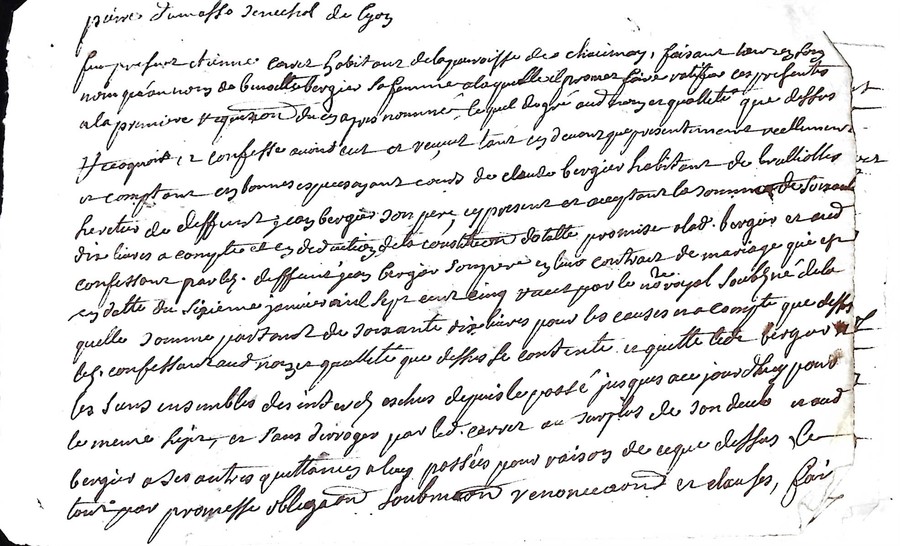 pierre dumasso senechol de lyon
fut present etienne carret habitant de la paroisse de chaumon, faisant tant en son
nom qu'au nom de benoitte bergier sa femme a laquelle il promet faire ratiffier ces presentes
a la premiere requisition du cy apres nommé, lequel de gré aud nom et quallitté que dessus
et confesse avoir eut et reçeut tant cy devant que presentement reellement
et comptant en bonnes especes ayant cours de claude bergier habitant de brulliolles
heretier de deffunt jean bergier son pere, cy present et aceptant la somme de soixante
dix livres a compte et en deduction de la constitution dotalle promise a lad. bergier et aud
confessant par led. deffunt jean bergier son pere en leur contract de mariage qui est
en datte du sixieme janvier mil sept cent cinq receu par le no.re royal soubsné de la
quelle somme partant de soixante dix livres pour les causes et a compte que dessus
led. confessant aud nom et quallitté que dessus se contente et quitte led. bergier
les sans ensembles des intherets escheus depuis le passé jusques a ce jourdhuy pour
le meme sujet, et sans deroger par led. carret au surplus de son deub et aud
bergier a ses autres quittances a luy passées pour raison de ce que dessus, Ce
tout par promesse obligaon soubmaon renonceaond et clauses, fait